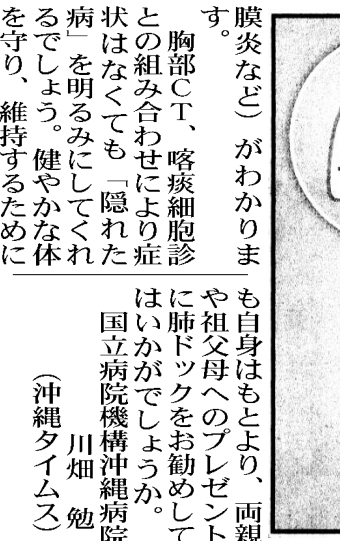 膜炎など）がわかりま
す。
　胸部ＣＴ、喀痰細胞診
との組み合わせにより症
状はなくても「隠れた
病」を明るみにしてくれ
るでしょう。健やかな体
を守り、維持するために
も自身はもとより、両親
や祖父母へのプレゼント
に肺ドックをお勧めして
はいかがでしょうか。
国立病院機構沖縄病院
川畑　勉
（沖縄タイムス）